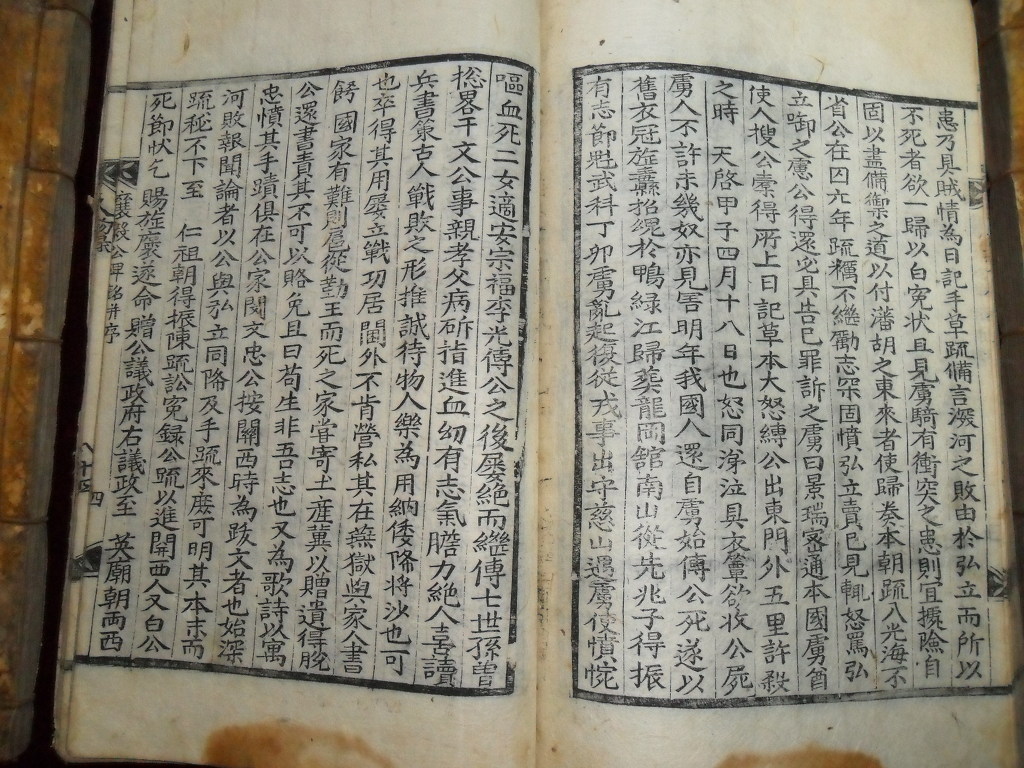 患乃具賊情為日記手草疏備言深河之敗由於弘立而所以
不死者欲一歸以白冤状且見虜騎有衝突之患則宜擾險自
固以盡備禦之道以付瀋胡之東來者使歸奏本朝疏入光海不
省公在囚六年疏糲不繼勵志罙固憤弘立賣己見輒怒罵弘
立啣之慮公得還必具告己罪訴之虜曰景瑞密通本國虜酋
使人搜公橐得所上日記草本大怒縛公出東門外五里許殺
之時 天啓甲子四月十八日也怒同涕泣具衣衾欲收公屍
虜人不許未幾奴亦見害明年我國人還自虜始傳公死遂以
舊衣冠旌纛招魂於鴨綠江歸葬龍岡舘南山從先兆子得振
有志節魁武科丁卯虜亂起復從戎事出守慈山遇虜使憤惋
嘔血死二女適安宗福李光傳公之後屡絶而繼傳七世孫曽
捴畧干文公事親孝父病斫指進血幼有志氣膽力絶人喜讀
兵書策古人戰敗之形推誠待物人樂為用納倭降将沙也可
也卒得其用屡立戰功居閫外不肯營私其在燕獄與家人書
餙國家有難則扈從勤王而死之家嘗寄土産蓂以贈遺得脫
公還書責其不可以賂免且曰苟生非吾志也又為歌詩以寓
忠憤其手蹟俱在公家閔文忠公按關西時為跋文者也始深
河敗報聞論者以公與弘立同降及手疏來庶可明其本末而
疏秘不下至 仁祖朝得振陳疏訟冤録公疏以進開西人又白公
死節状乞 賜旌褒遂命贈公議政府右議政至 英廟朝両西
公碑銘并序
四